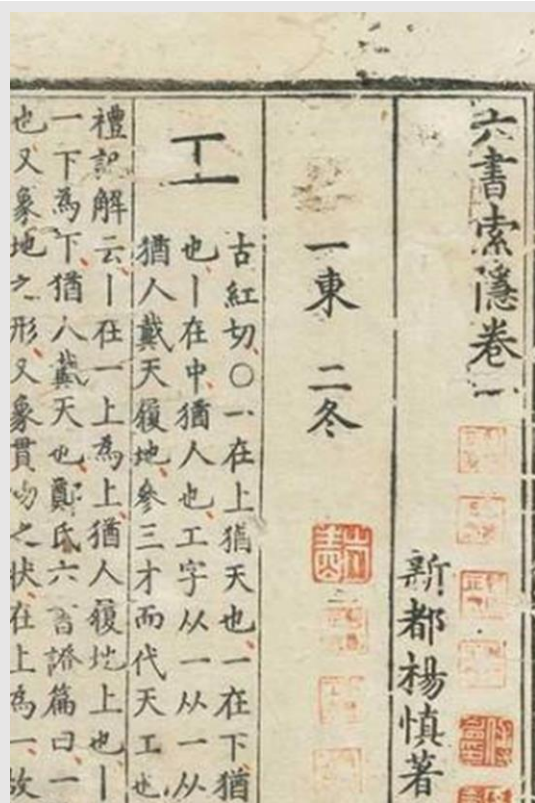 六書索隱卷一
新都楊慎著
一東 二冬
工
古紅切〇一在上猶天也一在下猶
也丨在中猶人也工字从一从一从
猶人戴天履地參三才而代天工也
禮記解云丨在一上為上猶人履地上也丨
一下為下猶人戴天也鄭氏六書證篇曰一
也又象地之形又象貫物之狀在上為一故